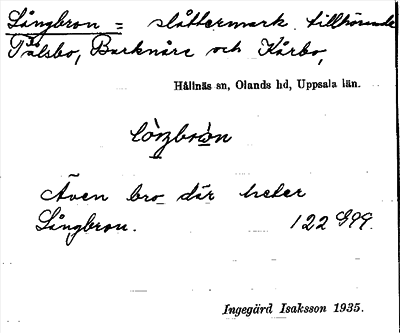 Långbron = slåttermark tillhörande
Pålsbo, Barknåre och Kårbo,
Hållnäs sn, Olands hd, Uppsala län.
Även bro där heter
Långbron. 122 G99.
Ingegärd Isaksson 1935.